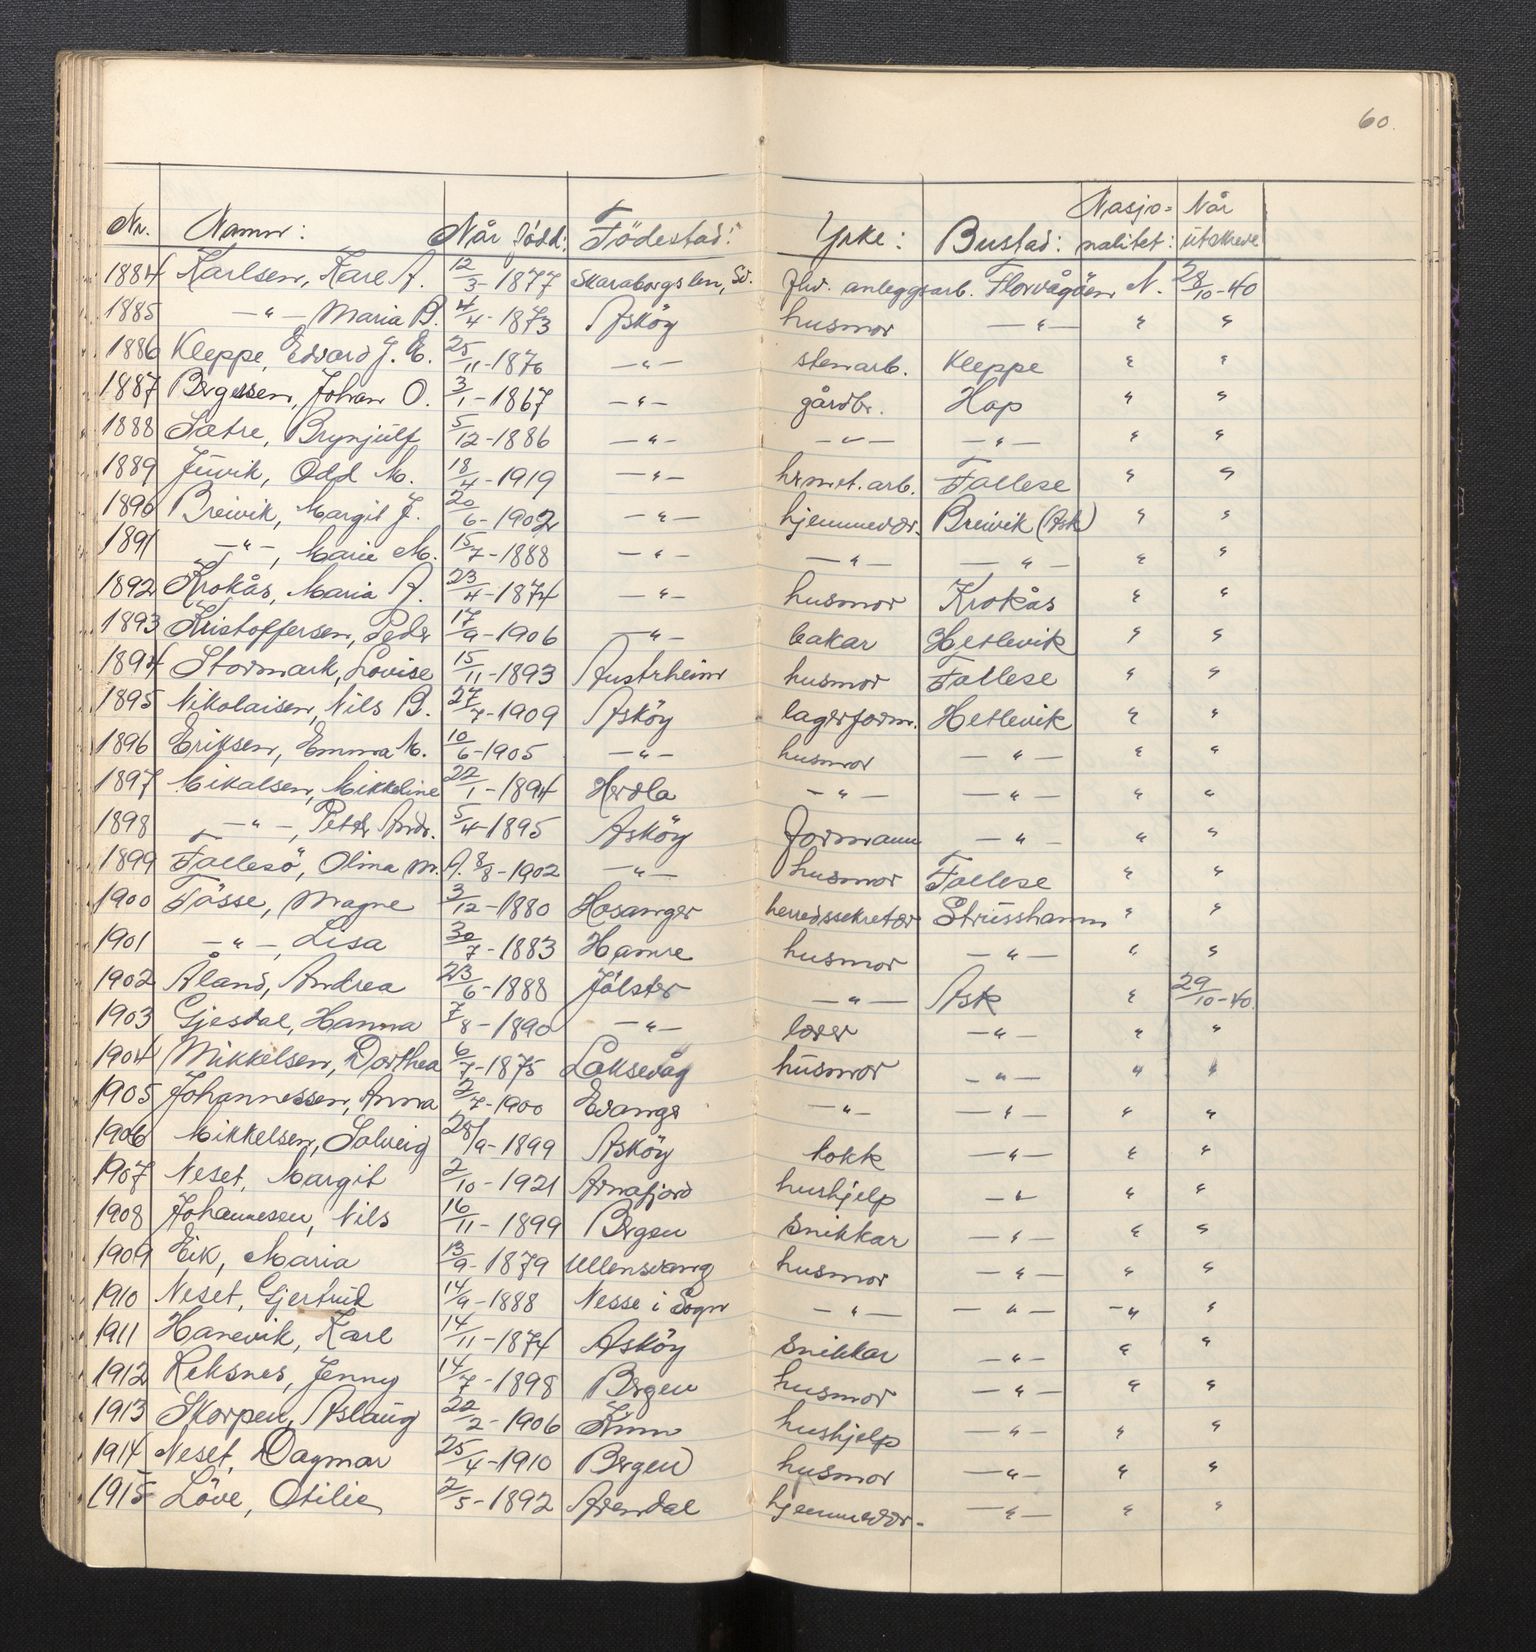 60.
Nr. Namn: Når född: Födestad: Yrke: Bustad: Nasjonalitet: Når utskreve
1884 Karlsen, Karl A. 12/3-1877 Skaraborgs len, Sv. fhv. anleggsarb. Florvågöen N. 28/10-40
1885 —"— Maria B. 4/4-1873 Asköy husmor —"— " "
1886 Kleppe, Edvard J. E. 25/11-1876 —"— stenarb. Kleppe " "
1887 Bergesen, Johan O. 3/1-1867 —"— gårdbr. Hop " "
1888 Sætre, Brynjulf 5/12-1886 —"— —"— —"— " "
1889 Juvik, Odd M. 18/4-1919 —"— hermet.arb. Follese " "
1890 Breivik, Margit J. 20/6-1902 —"— hjemmevær. Breivik (Ask) " "
1891 —"—, Marie M. 15/7-1888 —"— —"— —"— " "
1892 Krokås, Maria A. 23/4-1874 —"— husmor Krokås " "
1893 Kristoffersen, Peder 17/9-1906 —"— bakar Hetlevik " "
1894 Stormark, Lovise 15/11-1893 Austrheim husmor Follese " "
1895 Nikolaisen, Nils B. 27/7-1909 Asköy lagerform. Hetlevik " "
1896 Eriksen, Emma M. 10/6-1905 —"— husmor —"— " "
1897 Mikalsen, Mikkeline 22/1-1894 Herdla —"— —"— " "
1898 —"—, Peter Andr. 5/4-1895 Asköy formann —"— " "
1899 Follesö, Olina M. A. 8/8-1902 —"— husmor Follese " "
1900 Tösse, Magne 3/12-1880 Hosanger herredssekretær Strusshamn " "
1901 —"—, Lisa 30/7-1883 Hamre husmor —"— " "
1902 Åland, Andrea 23/6-1888 Jölster —"— Ask " 29/10-40
1903 Gjesdal, Hanna 7/8-1890 —"— lærer —"— " "
1904 Mikkelsen, Dorthea 6/7-1875 Laksevåg husmor —"— " "
1905 Johannessen, Anna 2/7-1900 Evanger —"— —"— " "
1906 Mikkelsen, Solveig 28/9-1899 Asköy kokk —"— " "
1907 Neset, Margit 2/10-1921 Arnafjord hushjelp —"— " "
1908 Johannesen, Nils 16/11-1899 Bergen snikkar —"— " "
1909 Eik, Maria 13/9-1879 Ullensvang husmor —"— " "
1910 Neset, Gjertrud 14/9-1888 Nesse i Sogn —"— —"— —"— "
1911 Hanevik, Karl 14/11-1874 Asköy snikkar —"— " "
1912 Reksnes, Jenny 14/7-1898 Bergen husmor —"— " "
1913 Skorpen, Aslaug 22/2-1906 Kinn hushjelp —"— " "
1914 Neset, Dagmar 25/4-1910 Bergen husmor —"— " "
1915 Löve, Otilie 2/5-1892 Arendal hjemmevær- —"— " "